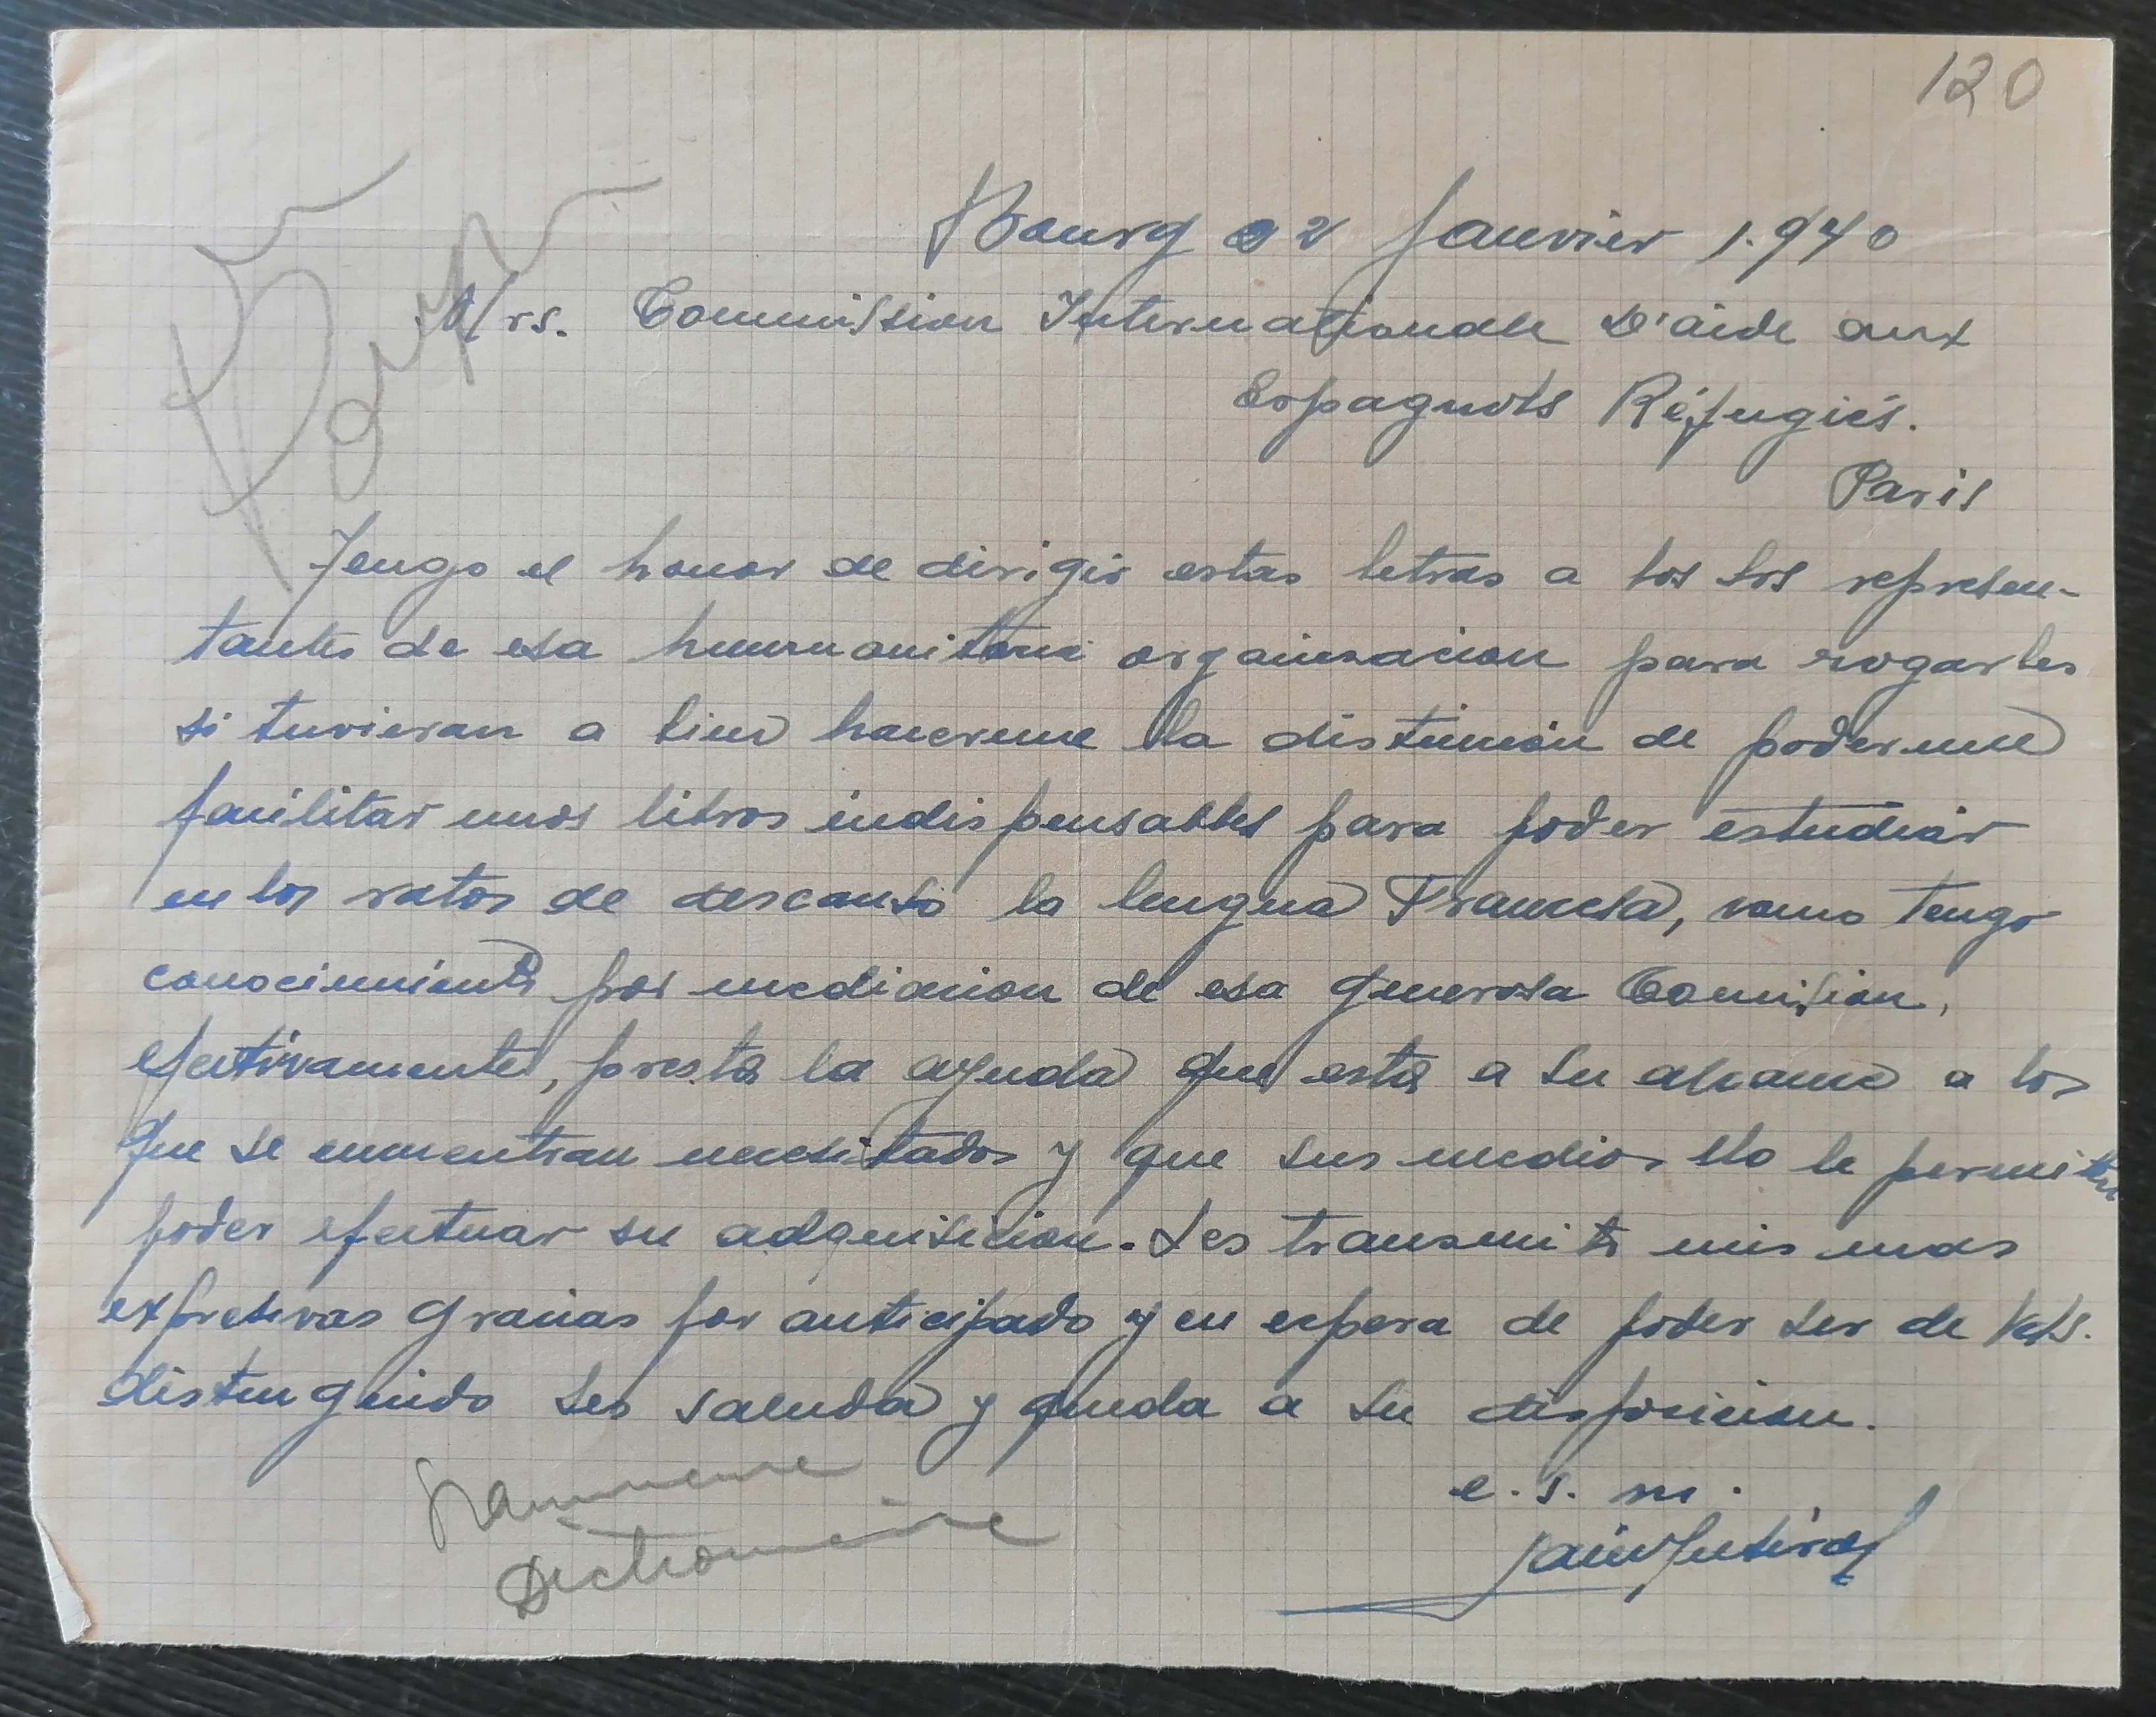 120
Bourg 02 Janvier 1.940
Mrs. Commission Internationale D'aide aux
Espagnols Réfugiés.
Paris
Tengo el honor de dirigir estas letras a los Srs represen-
tantes de esa humanitaria organizacion para rogarles
si tuvieran a bien hacerme la distincion de poderme
facilitar unos libros indispensables para poder estudiar
en los ratos de descanso la lengua Francesa, como tengo
conocimiento por mediacion de esa generosa Comision,
efectivamente, presta la ayuda que esta a su alcance a los
que se encuentran necesitados y que sus medios No le permiten
poder efectuar su adquisicion. Les transmito mis mas
expresivas gracias por anticipado y en espera de poder ser de Vds.
distinguido les saluda y queda a su disposicion.
e. s. m.
Grammaire
Dictionnaire